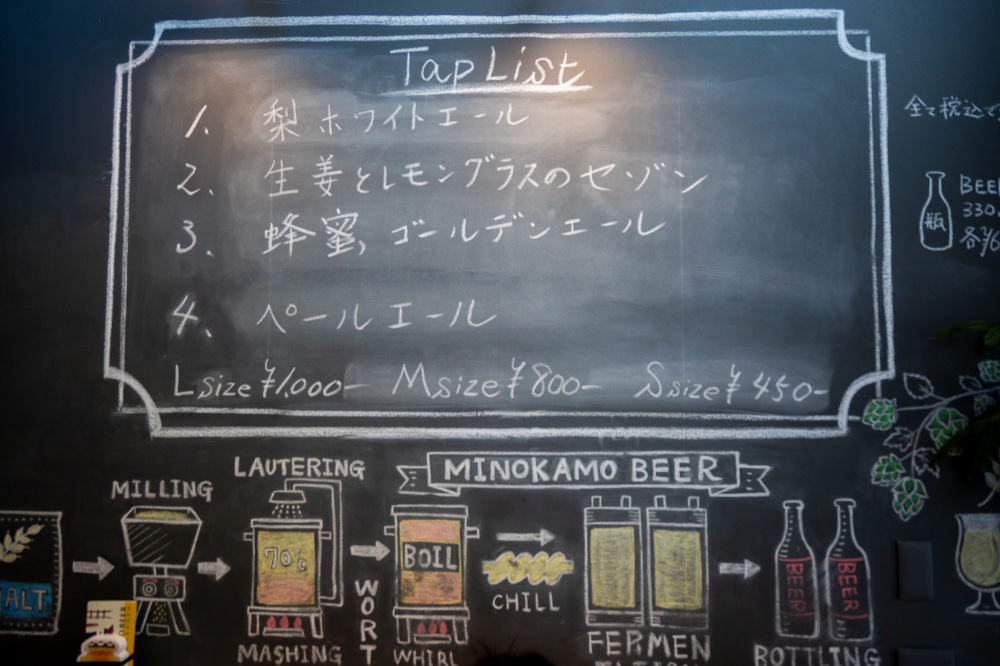 Tap List
1. 梨ホワイトエール
2. 生姜とレモングラスのセゾン
3. 蜂蜜,ゴールデンエール
4. ペールエール
L size ¥1,000- M size ¥800- S size ¥450-
全て税込で
瓶
BEE
330
各¥6
MINOKAMO BEER
LAUTERING
MILLING
70℃
BOIL
ALT
WORT
CHILL
BEER
BEER
MASHING
WHIRL
FERMEN
BOTTLING